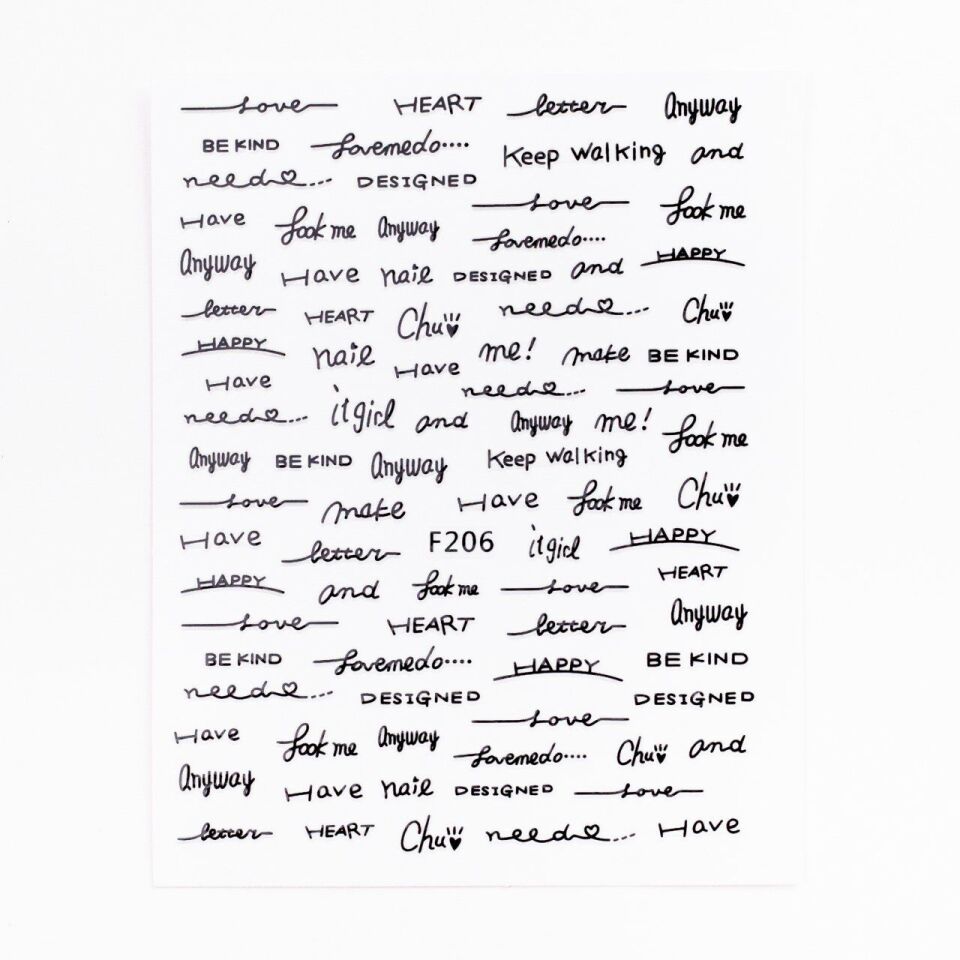 love HEART letter Anyway
BE KIND lovemedo.... Keep walking and
need... DESIGNED
love look me
Have look me Anyway lovemedo....
Anyway Have nail DESIGNED and HAPPY
letter HEART Chu need... Chu
HAPPY nail Have me! make BE KIND
Have need... love
need... itgirl and Anyway me! look me
Anyway BE KIND Anyway Keep walking
love make Have look me Chu
Have letter F206 itgirl HAPPY
HAPPY and look me love HEART
love HEART letter Anyway
BE KIND lovemedo.... HAPPY BE KIND
need... DESIGNED DESIGNED
love
Have look me Anyway lovemedo.... Chu and
Anyway Have nail DESIGNED love
letter HEART Chu need... Have